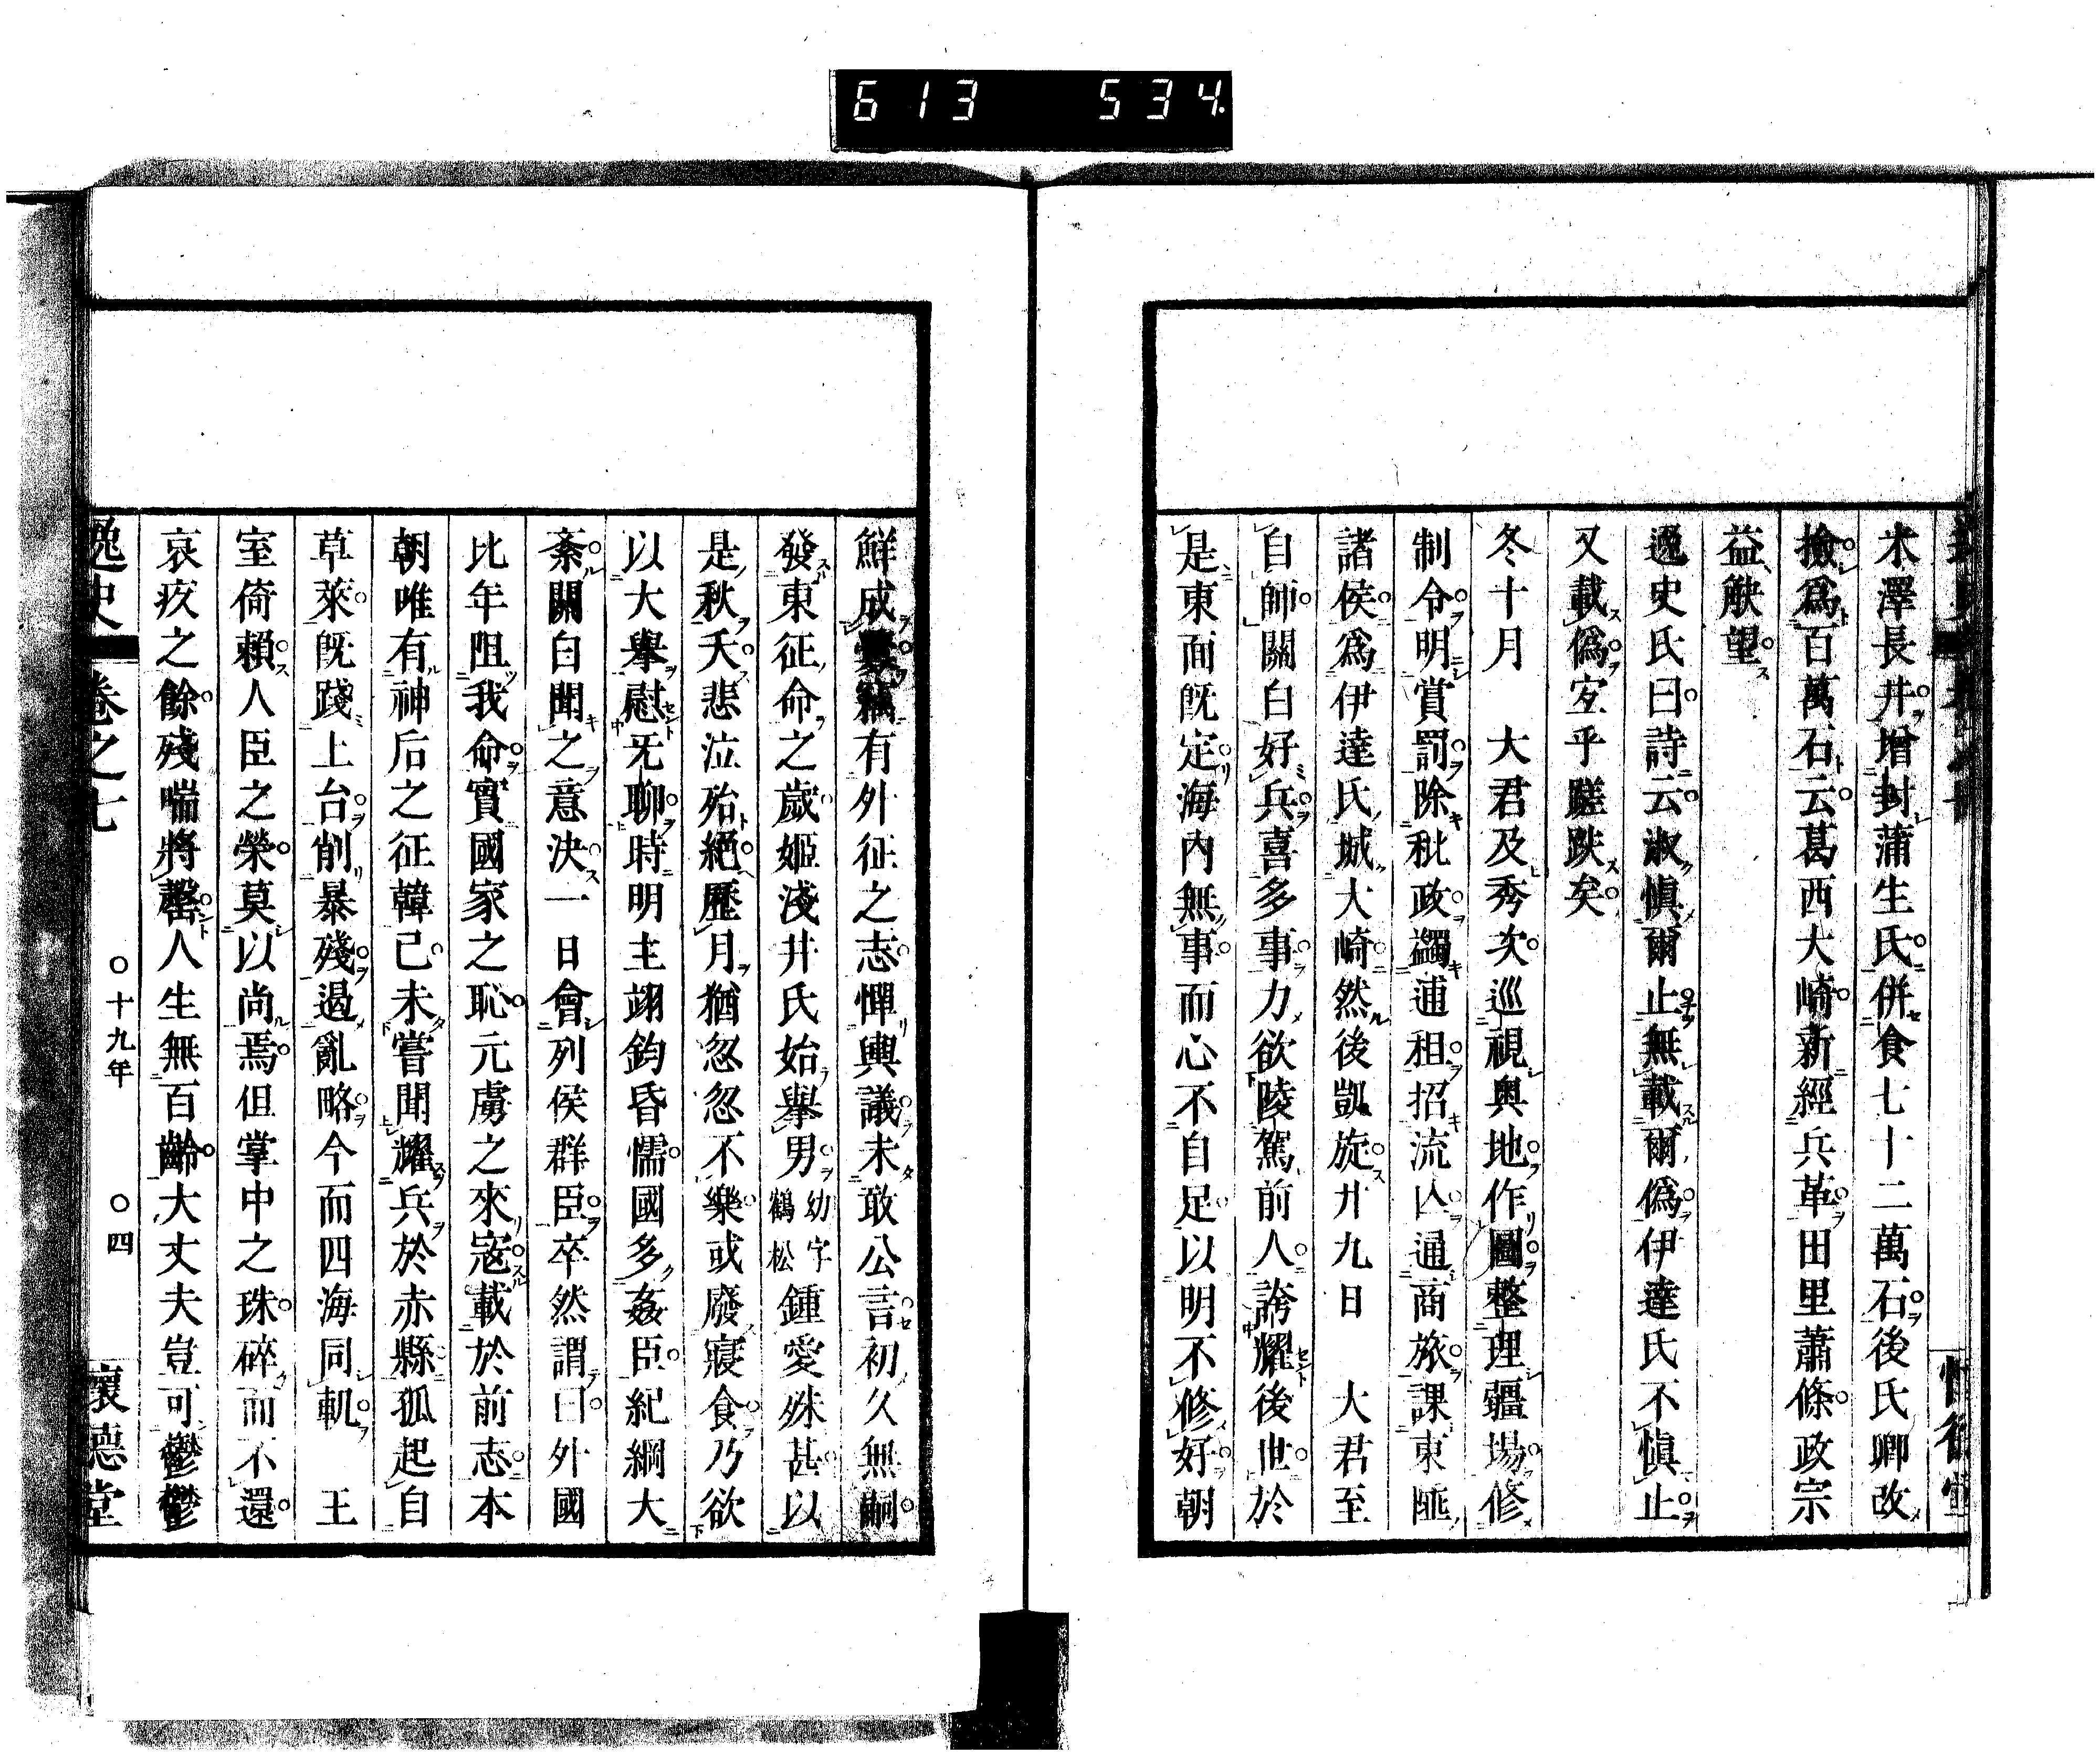 613 534.
米澤長井增封蒲生氏併食七十二萬石後氏卿改
撿爲百萬石云葛西大崎新經兵革田里蕭條政宗
益觖望
逸史氏曰詩云淑愼爾止無載爾僞伊達氏不愼止
又載僞宐乎蹉跌矣
冬十月　大君及秀次巡視奥地作圖整理疆場修
制令明賞罰除秕政蠲逋租招流亾通商旅課東匯
諸侯爲伊達氏城大崎然後凱旋廾九日　大君至
自師關白好兵喜多事力欲陵駕前人誇耀後世於
是東面既定海内無事而心不自足以明不修好朝
鮮成釁竊有外征之志憚輿議未敢公言初久無嗣
發東征命之歲姬淺井氏始擧男幼字鶴松鍾愛殊甚以
是秋夭悲泣殆絶歷月猶忽忽不樂或廢寢食乃欲
以大擧慰无聊時明主翊鈞昏懦國多姦臣紀綱大
紊關白聞之意決一日會列侯群臣卒然謂曰外國
比年阻我命實國家之恥元虜之來寇載於前志本
朝唯有神后之征韓已未嘗聞耀兵於赤縣孤起自
草萊既踐上台削暴殘遏亂略今而四海同軌　王
室倚賴人臣之榮莫以尚焉但掌中之珠碎而不還
哀疚之餘殘喘將罄人生無百齡大丈夫豈可鬱鬱
逸史　卷之七　○十九年　○四　懷德堂